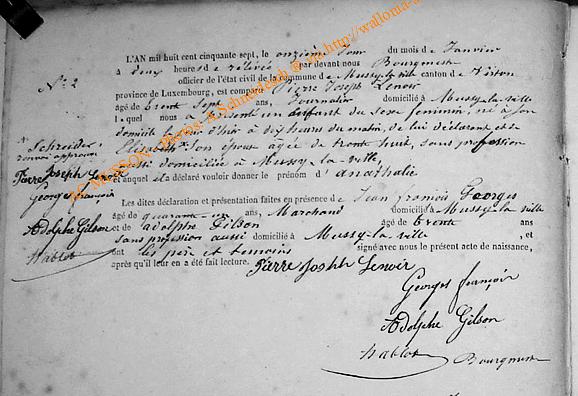 N° 2
L'AN mil huit cent cinquante sept, le onzième jour du mois de Janvier
à deux heures de relevée par devant nous Bourgmestre
officier de l'état civil de la commune de Mussy-la-ville canton de Virton
province de Luxembourg, est comparu Pierre Joseph Lenoir
âgé de trente sept ans, Journalier domicilié à Mussy-la-ville
lequel nous a présenté un enfant du sexe féminin, né à son
domicile le jour d'hier à dix heures du matin, de lui déclarant et de
Elisabeth son épouse agée de trente huit, sans profession
aussi domiciliée à Mussy-la-ville,
et auquel il a déclaré vouloir donner le prénom d'anathalie
Schreider
renvoi approuvé
Pierre Joseph Lenoir
Georges françois
Adolphe Gilson
hablot
Les dites déclaration et présentation faites en présence de Jean françois Georges
âgé de quarante-un ans, Marchand domicilié à Mussy la ville
et de adolphe Gilson âgé de trente ans,
sans profession aussi domicilié à Mussy-la-ville , et
ont les père et temoins signé avec nous le présent acte de naissance,
après qu'il leur en a été fait lecture. Pierre Joseph Lenoir
Georges françois
Adolphe Gilson
hablot Bourgmestre